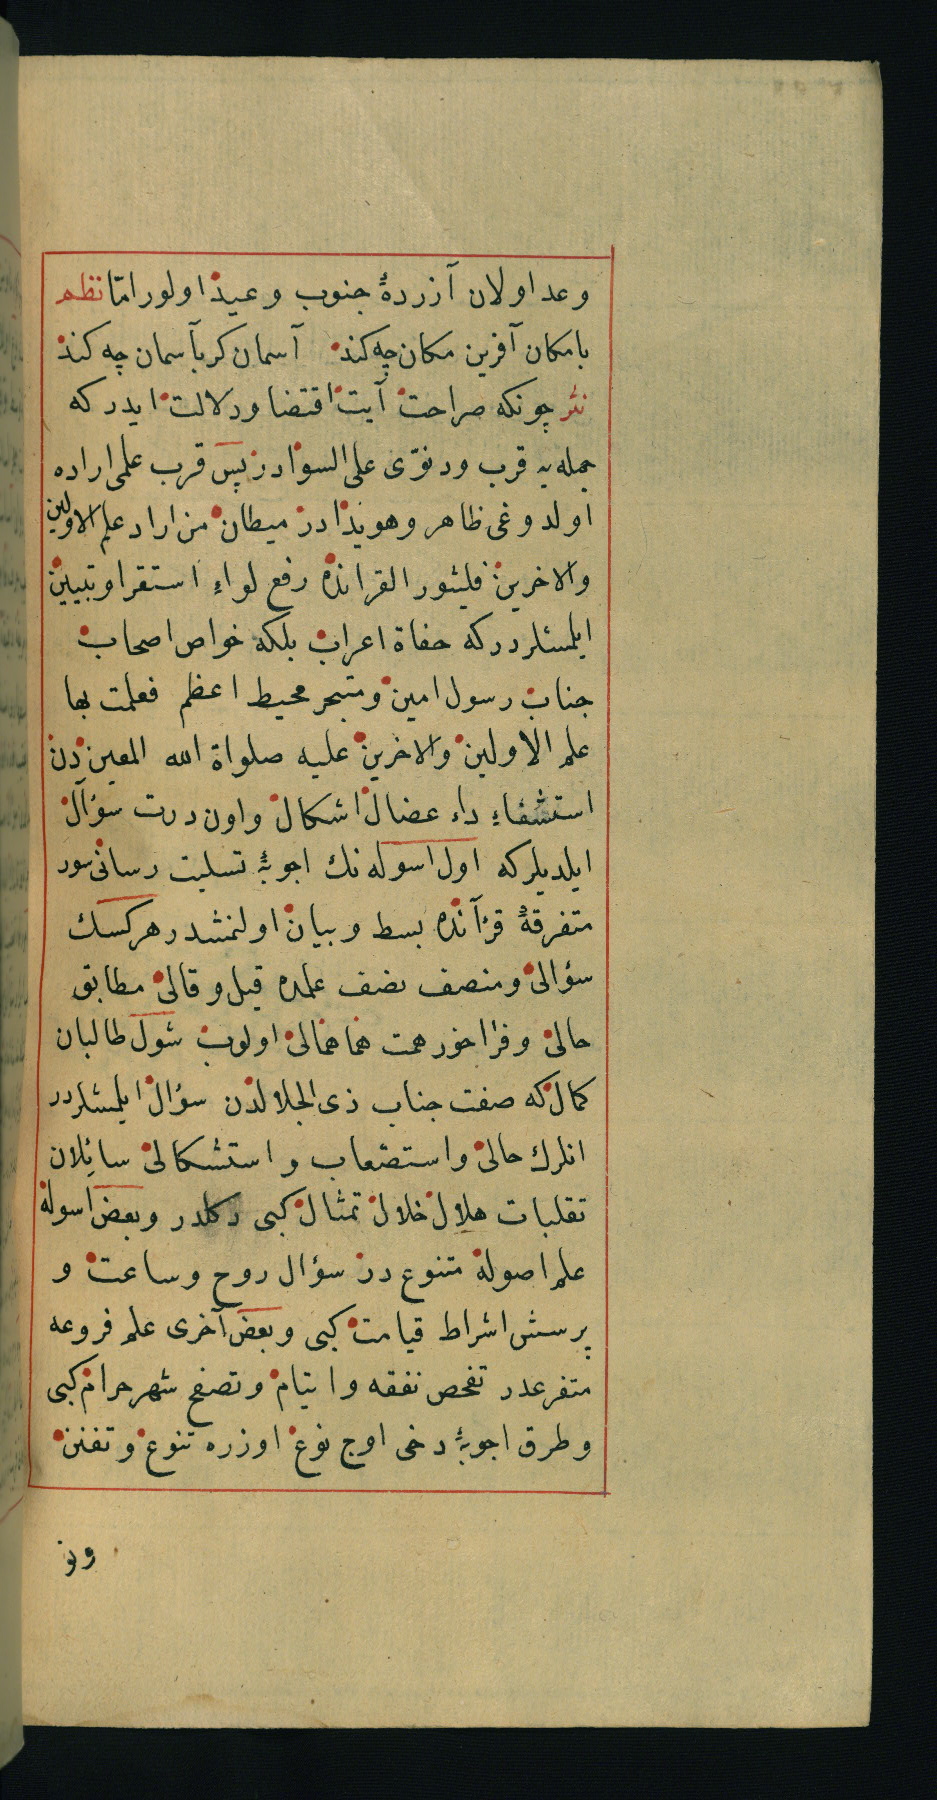 وعد اولان آزردهٔ جنوب وعيد اولور امّا نظم
با مكان آفرين مكان چه كند آسمان كر بآسمان چه كند
نثر چونكه صراحت آيت اقتضا و دلالت ايدر كه
جمله يه قرب و دنوّى على السوادر پس قرب علمى اراده
اولدوغى ظاهر وهويدادر ميطان من اراد علم الاولين
والاخرين فليثور القرانده رفع لواء استقرا وتبيين
ايلمشلردر كه حفاة اعراب بلكه خواص اصحاب
جناب رسول امين ومتبحر محيط اعظم فعلمت بها
علم الاولين والاخرين عليه صلواة الله المعين دن
استشفاء داء عضال اشكال واون درت سؤال
ايلديلر كه اول اسوله نك اجوبهٔ تسليت رسانى سور
متفرقهٔ قرآنده بسط وبيان اولنمشدر هر كسك
سؤالى ومنصف نصف علمده قيل وقالى مطابق
حالى وفراخور همت هما همالى اولوب شول طالبان
كمال كه صفت جناب ذى الجلالدن سؤال ايلمشلردر
انلرك حالى واستصعاب واستشكالى سائلان
تقلبات هلال خلال تمثال كبى دكلدر وبعض اسوله
علم اصوله متنوع در سؤال روح وساعت و
پرسش اشراط قيامت كبى وبعض آخرى علم فروعه
متفرعدر تفحص نفقه وايتام وتصفح شهر حرام كبى
وطرق اجوبهٔ دخى اوج نوع اوزره تنوع وتفنن